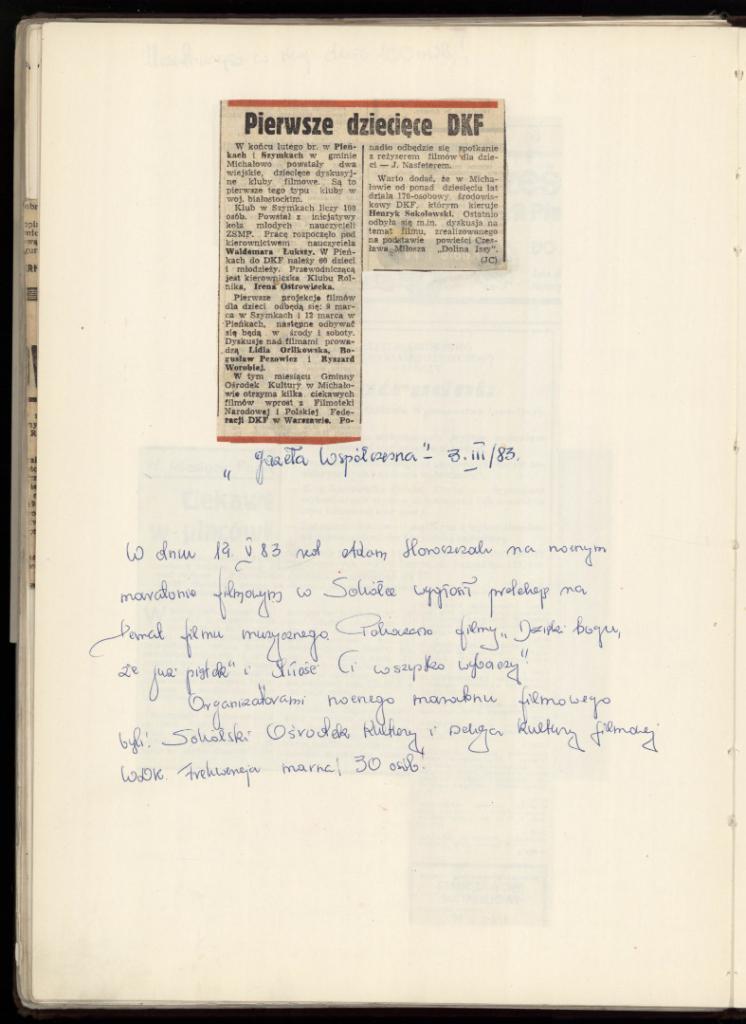 Pierwsze dziecięce DKF
W końcu lutego br. w Pień-
kach i Szymkach w gminie
Michałowo powstały dwa
wiejskie, dziecięce dyskusyj-
ne kluby filmowe. Są to
pierwsze tego typu kluby w
woj. białostockim.
Klub w Szymkach liczy 108
osób. Powstał z inicjatywy
koła młodych nauczycieli
ZSMP. Pracę rozpoczęło pod
kierownictwem nauczyciela
Waldemara Łukszy. W Pień-
kach do DKF należy 60 dzieci
i młodzieży. Przewodniczącą
jest kierowniczka Klubu Rol-
nika, Irena Ostrowiecka.
Pierwsze projekcje filmów
dla dzieci odbędą się: 9 mar-
ca w Szymkach i 12 marca w
Pieńkach, następne odbywać
się będą w środy i soboty.
Dyskusje nad filmami prowa-
dzą Lidia Orlikowska, Bo-
gusław Pezowicz i Ryszard
Worobiej.
W tym miesiącu Gminny
Ośrodek Kultury w Michało-
wie otrzyma kilka ciekawych
filmów wprost z Filmoteki
Narodowej i Polskiej Fede-
racji DKF w Warszawie. Po-
nadto odbędzie się spotkanie
z reżyserem filmów dla dzie-
ci — J. Nasfeterem.
Warto dodać, że w Micha-
łowie od ponad dziesięciu lat
działa 170-osobowy, środowis-
kowy DKF, którym kieruje
Henryk Sokołowski. Ostatnio
odbyła się m.in. dyskusja na
temat filmu, zrealizowanego
na podstawie powieści Czes-
ława Miłosza „Dolina Issy".
(JC)
„Gazeta Współczesna" – 3.III/83.
W dniu 19. V 83 kol Adam na nocnym
maratonie filmowym w Sokółce wygłosił prelekcję na
temat filmu muzycznego. Pokazano filmy „Dzięki Bogu,
że już piątek" i "Miłość Ci wszystko wybaczy".
Organizatorami nocnego maratonu filmowego
byli: Sokólski Ośrodek Kultury i Sekcja Kultury filmowej
WDK. Frekwencja marna! 30 osób!